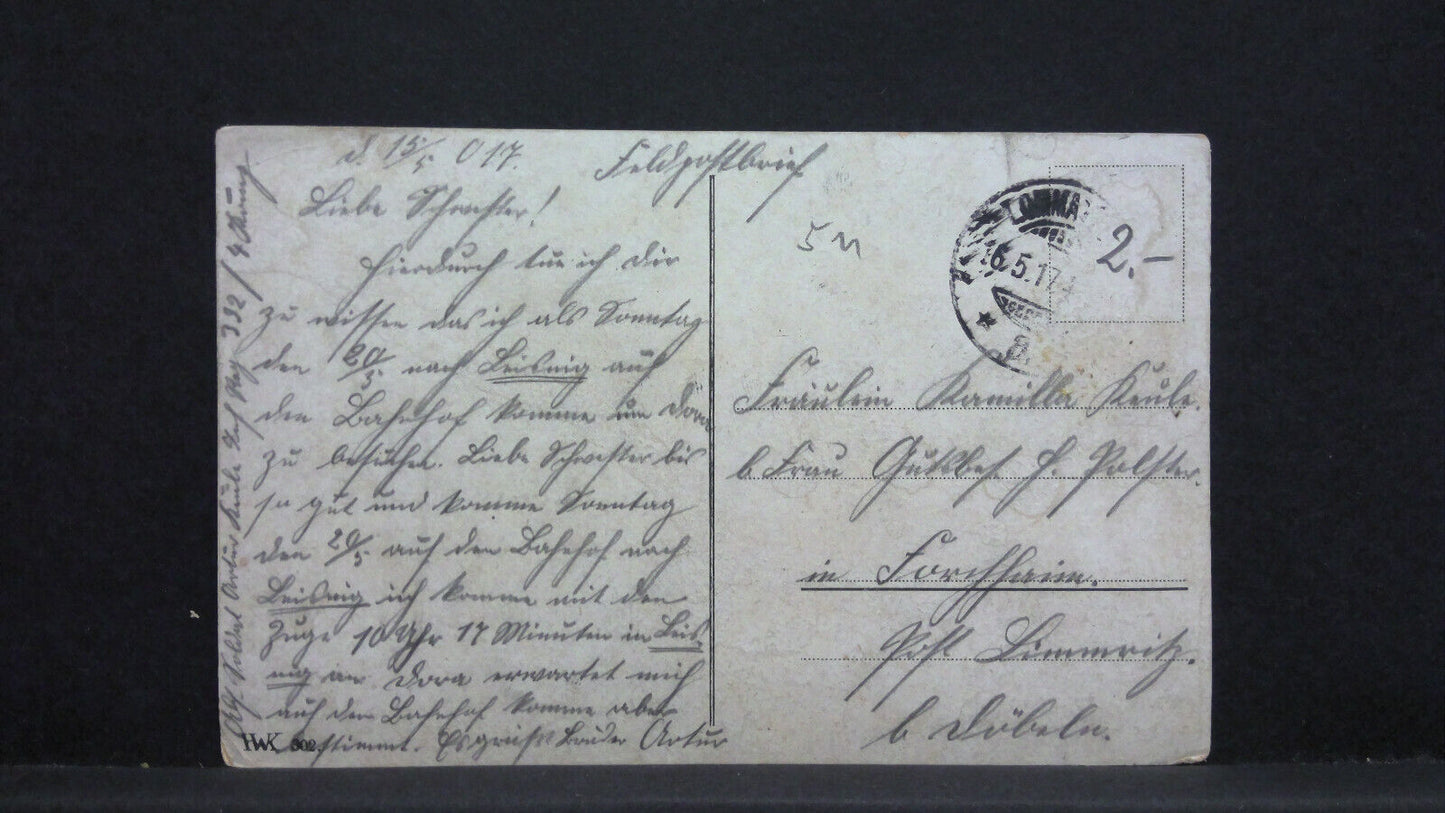 d. 15/5 017.
Feldpostbrief
Liebe Schwester!
Hierdurch tue ich dir
zu wissen das ich als Sonntag
den 20/5 nach Leisnig auf
den Bahnhof komme um Dora
zu besuchen. Liebe Schwester bis
so gut und komme Sonntag
den 20/5 auf den Bahnhof nach
Leisnig ich komme mit den
Zuge 10 Uhr 17 Minuten in Leis
nig an Dora erwartet mich
auf den Bahnhof komme aber
bestimmt. Es grüßt Bruder Artur
Abs. Soldat Artur Keule 332/4
HWK 302
5 M
LOMMA
16.5.17
2.-
Fräulein Kamilla Keule.
b. Frau Gutsbes. H. Polster.
in Forchheim.
Post Limmritz.
b Döbeln.